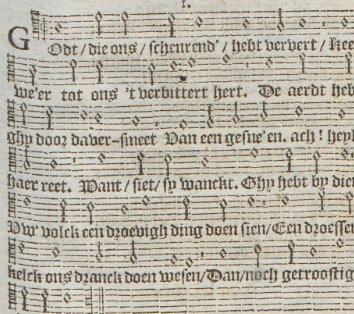 1.
GOdt/die ons/scheurend'/hebt ververt/kee
we'er tot ons 't verbittert hert. De aerdt heb
ghy door daver-smeet Van een gesne'en. ach! heyl
haer reet. Want/siet/sy wanckt. Ghy hebt by dien
Uw' volck een droevigh ding doen sien/Een droessem
kelck ons dranck doen wesen/Dan/noch getroostig